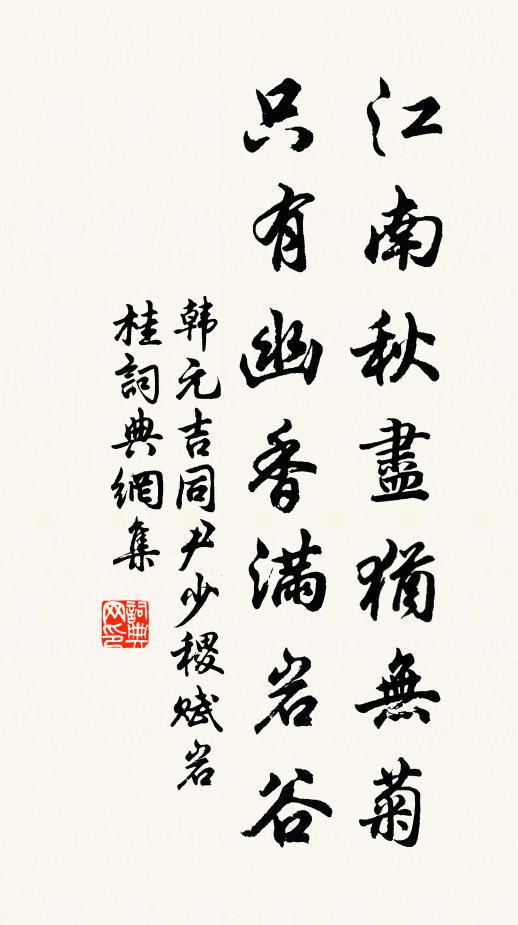 江南秋盡猶無菊
只有幽香滿岩谷
韩元吉同尹少稷赋岩
桂詞典網集
詞典网印